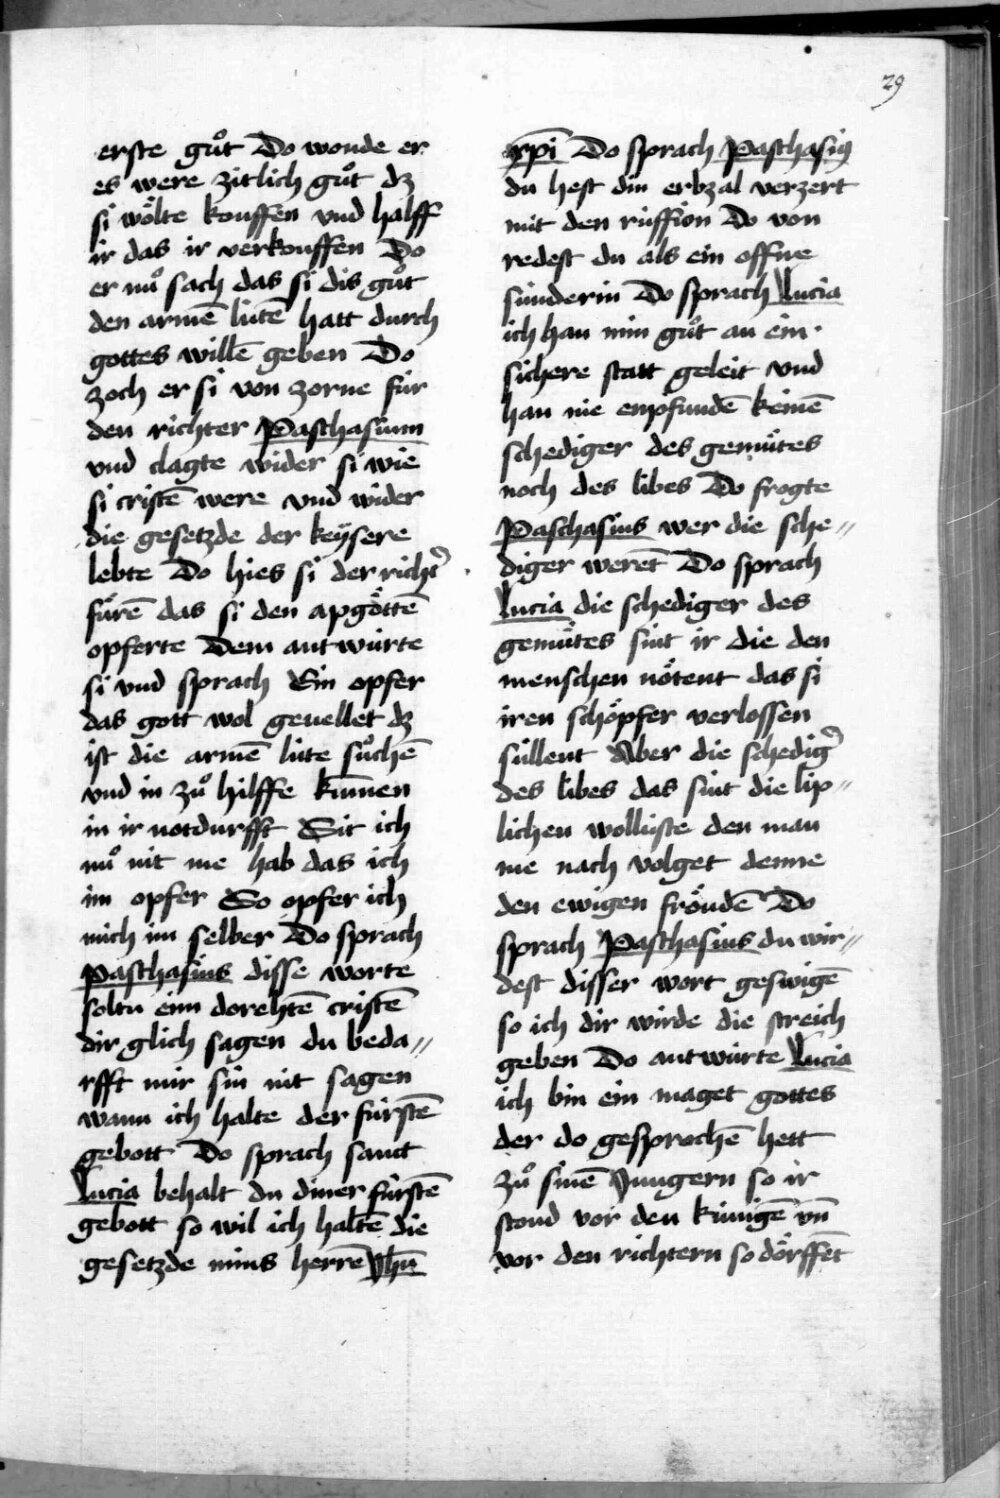 29
erste guͦt Do wonde er
es were zitlich guͦt dz
si woͤlte kouffen vnd halff
ir das ir verkouffen Do
er nuͦ sach das si dis guͦt
den armē lútē hatt durch
gottes willē geben Do
zoch er si von zorne fúr
den richter Paschasium
vnd clagte wider si wie
si cristē were vnd wider
die gesetzde der keÿsere
lebte Do hies si der richt͛
fuͤrē das si den apgoͤttē
opferte Dem antwúrte
si vnd sprach Ein opfer
das gott wol geuellet dz
ist die armē lúte suͦchē
vnd in zuͦ hilffe kūmen
in ir notdurfft Sit ich
nuͦ nit me hab das ich
im opfer So opfer ich
mich im selber Do sprach
Paschasius disse worte
soltu eim dorehtē cristē
dir glich sagen du beda〃
rfft mir sin nit sagen
wann ich halte der fúrstē
gebott Do sprach sanct
Lucia behalt du diner fúrstē
gebott so wil ich haltē die
gesetzde mins herrē Jhū
xp̄i Do sprach Paschasiꝯ
du hest din erbzal verzert
mit den ruffion Do von
redest du als ein offne
súnderin Do sprach Lucia
ich han min guͦt an ein
sichere statt geleit vnd
han nie enpfundē keinē
schediger des gemuͤtes
noch des libes Do frogte
Paschasius wer die sche〃
diger werēt Do sprach
Lucia die schediger des
gemuͤtes sint ir die den
menschen noͤtent das si
iren schoͤpfer verlossen
súllent Aber die schedig͛
des libes das sint die lip〃
lichen wollúste den man
me nach volget denne
den ewigen froͤudē Do
sprach Paschasius du wir〃
dest disser wort geswigē
so ich dir wirde die streich
geben Do antwúrte Lucia
ich bin ein maget gottes
der do gesprochē hett
zuͦ sinē Jungern so ir
stond vor den kúnigē vn̄
vor den richtern so doͤrffēt